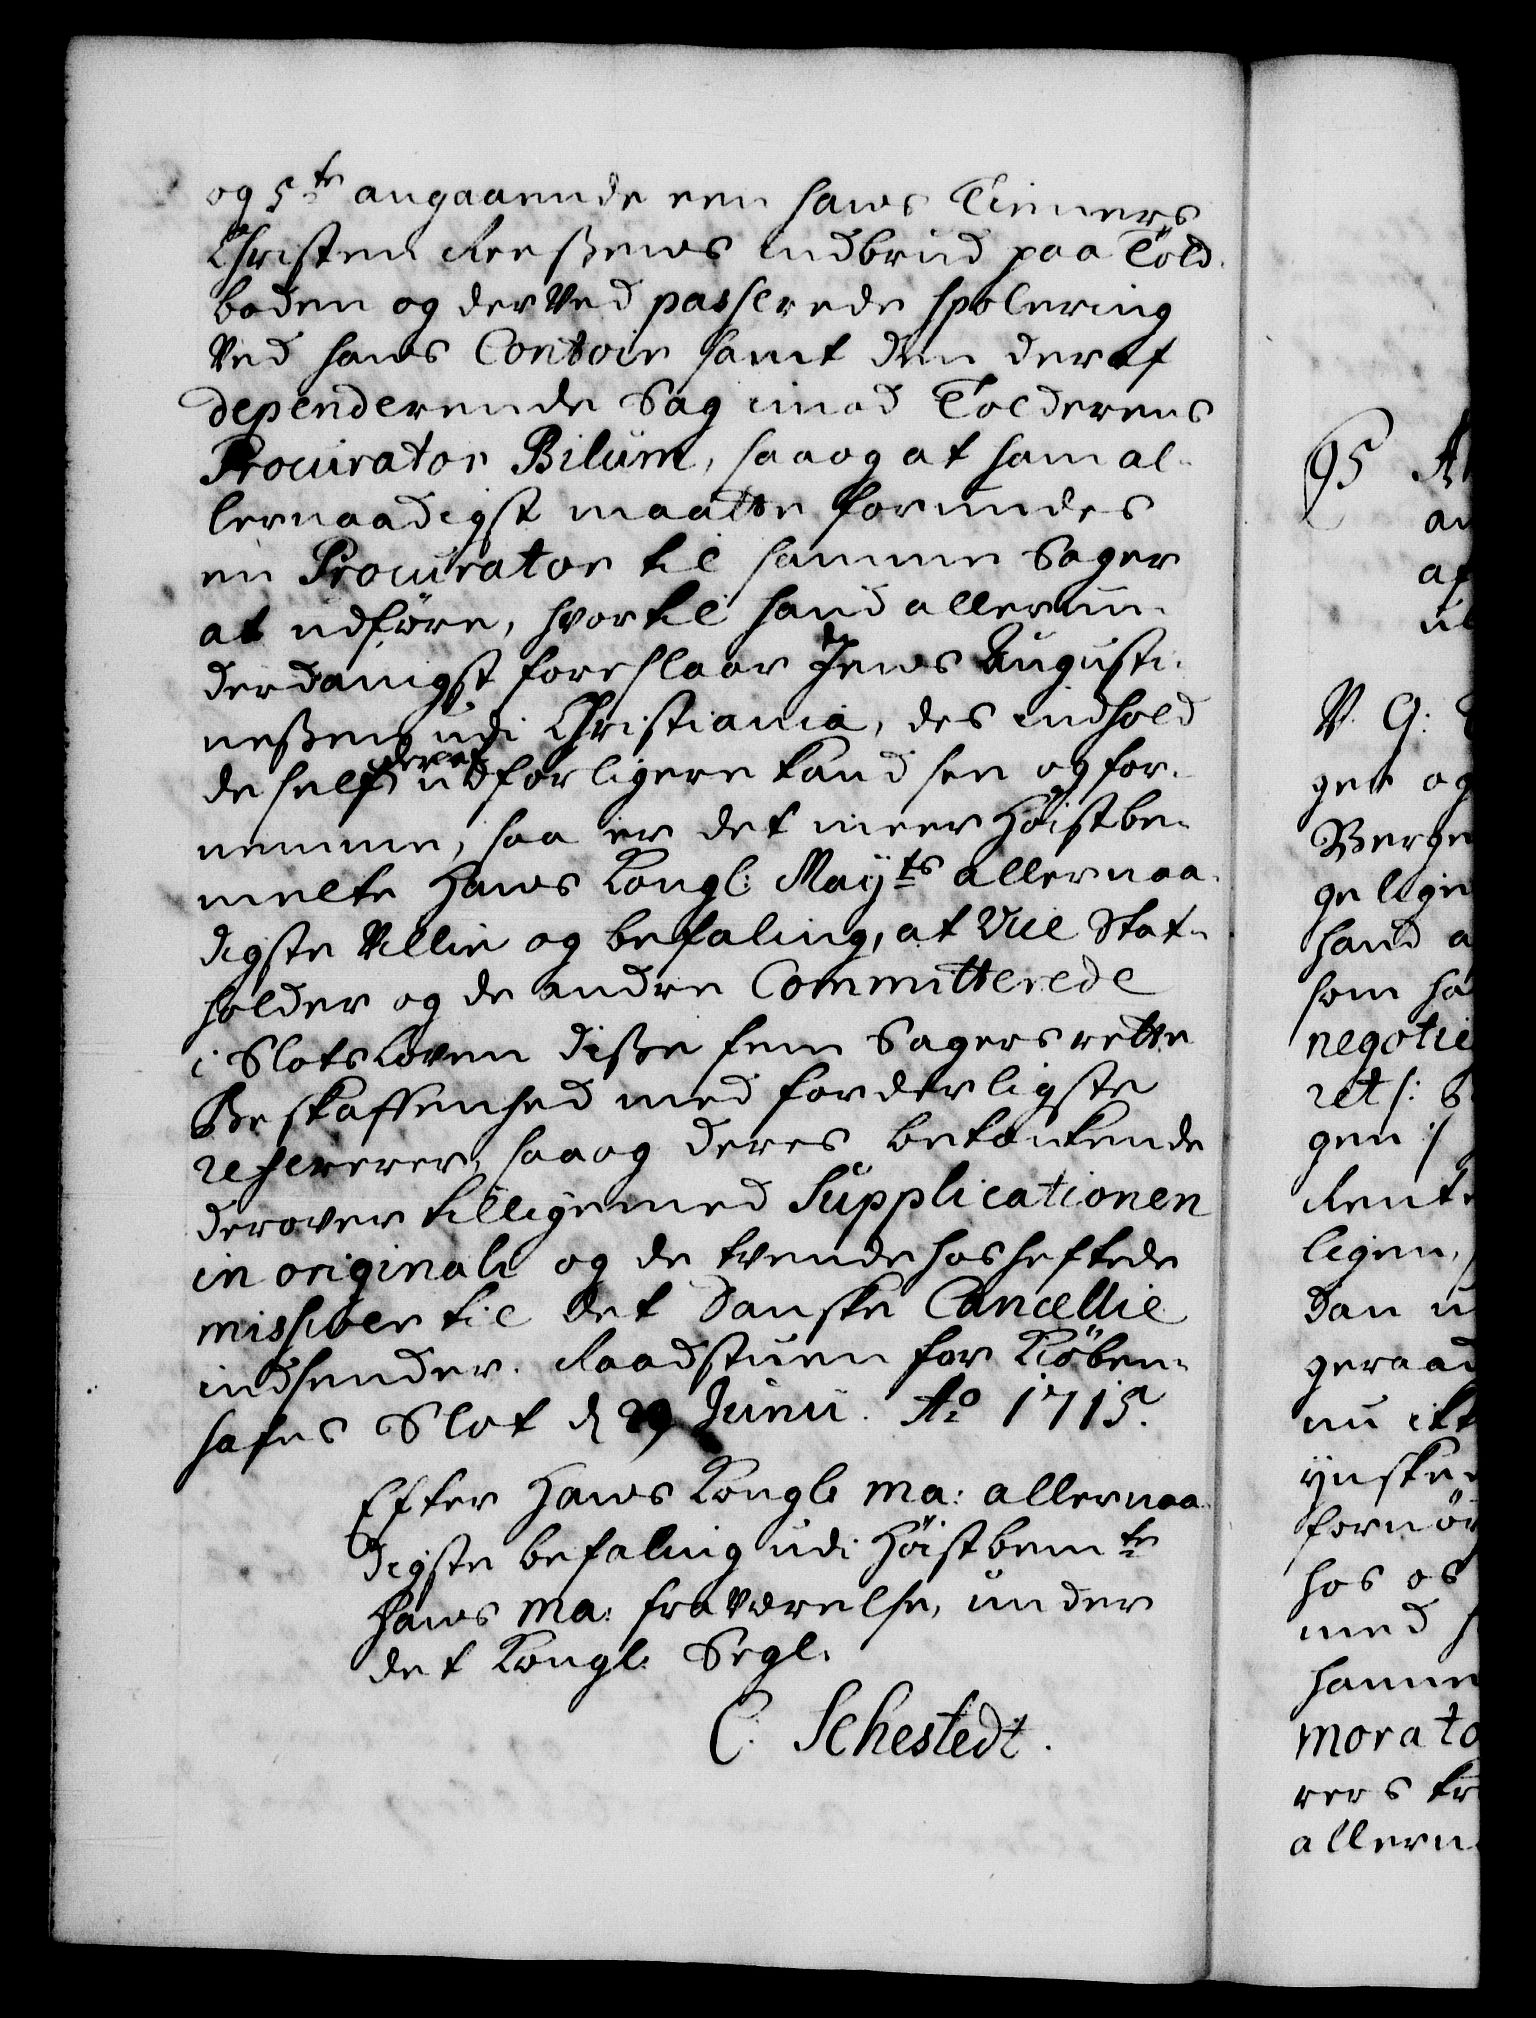 og 5te angaaende een hans Tieners
Christen Reeßens indbrud paa Told-
boden og derved passerede spolering
Ved hans Contoir samt den deraf
dependerende Sag imod Tolderens
Procurator Bilum, saaog at ham al-
lernaadigst maatte forundes
en Procurator til samme Sager
at udføre, hvortil hand allerun-
derdanigst foreslaar Jens Augusti-
neßen udi Christiania, des indhold
de self deraf udforligere kand see og for-
nemme, saa er det meer Høistbe-
melte Hans Kongl: Mayts allernaa-
digste Villie og befaling, at Vice Stat-
holder og de andre Committerede
i Slotsloven diße fem Sagers rette
Beskaffenhed med forderligste
refererer, saaog deres betænkende
derover tilligemed Supplicationen
in originali og de tvende hosheftede
missiver til det Danske Cancellie
indsender. Raadstuen for Kiøben-
hafns Slot d 29 Junii. Ao 1715.
Efter Hans Kongl: Ma: allernaa-
digste befaling udi Høistbemte
Hans Ma: fraværelse, under
det Kongl: Segl.
C. Sehestedt.
95
V. G:
ger og
Berge
gelige
hand a
som ha
negotie
ret /: S
gen :/
Rente
ligen,
dan u
geraad
nu ikk
ynske
fornø
hos os
med h
hanne
morato
rers tr
allern